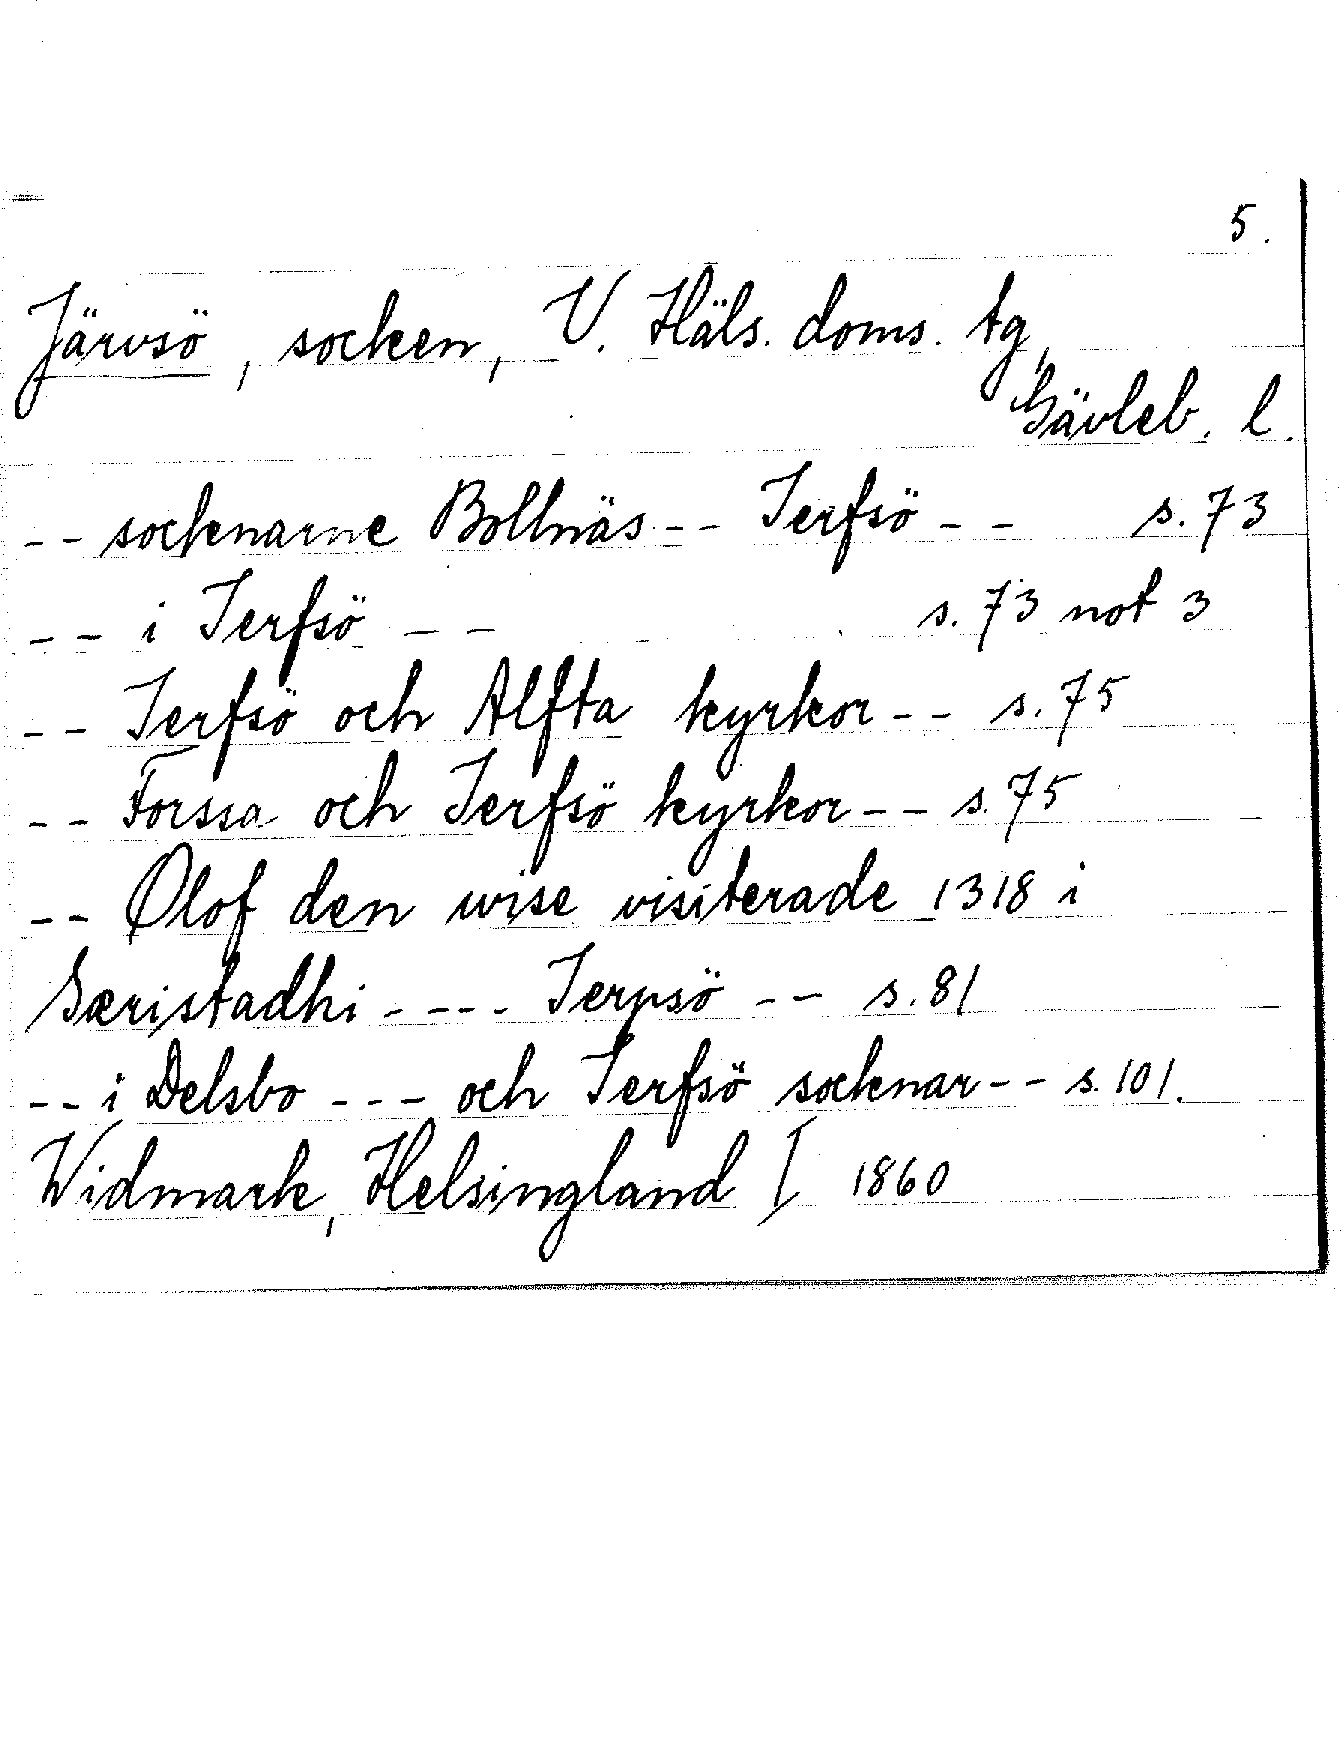 5.
Järvsö, socken, V. Häls. doms. tg,
Gävleb. l.
-- socknarne Bollnäs -- Jerfsö -- s. 73
-- i Jerfsö -- s. 73 not 3
-- Jerfsö och Alfta kyrkor -- s. 75
-- Forssa och Jerfsö kyrkor -- s. 75
-- Olof den wise visiterade 1318 i
Særistadhi ---- Jerpsö -- s. 81
-- i Delsbo --- och Jerfsö socknar -- s. 101.
Widmark, Helsingland I 1860